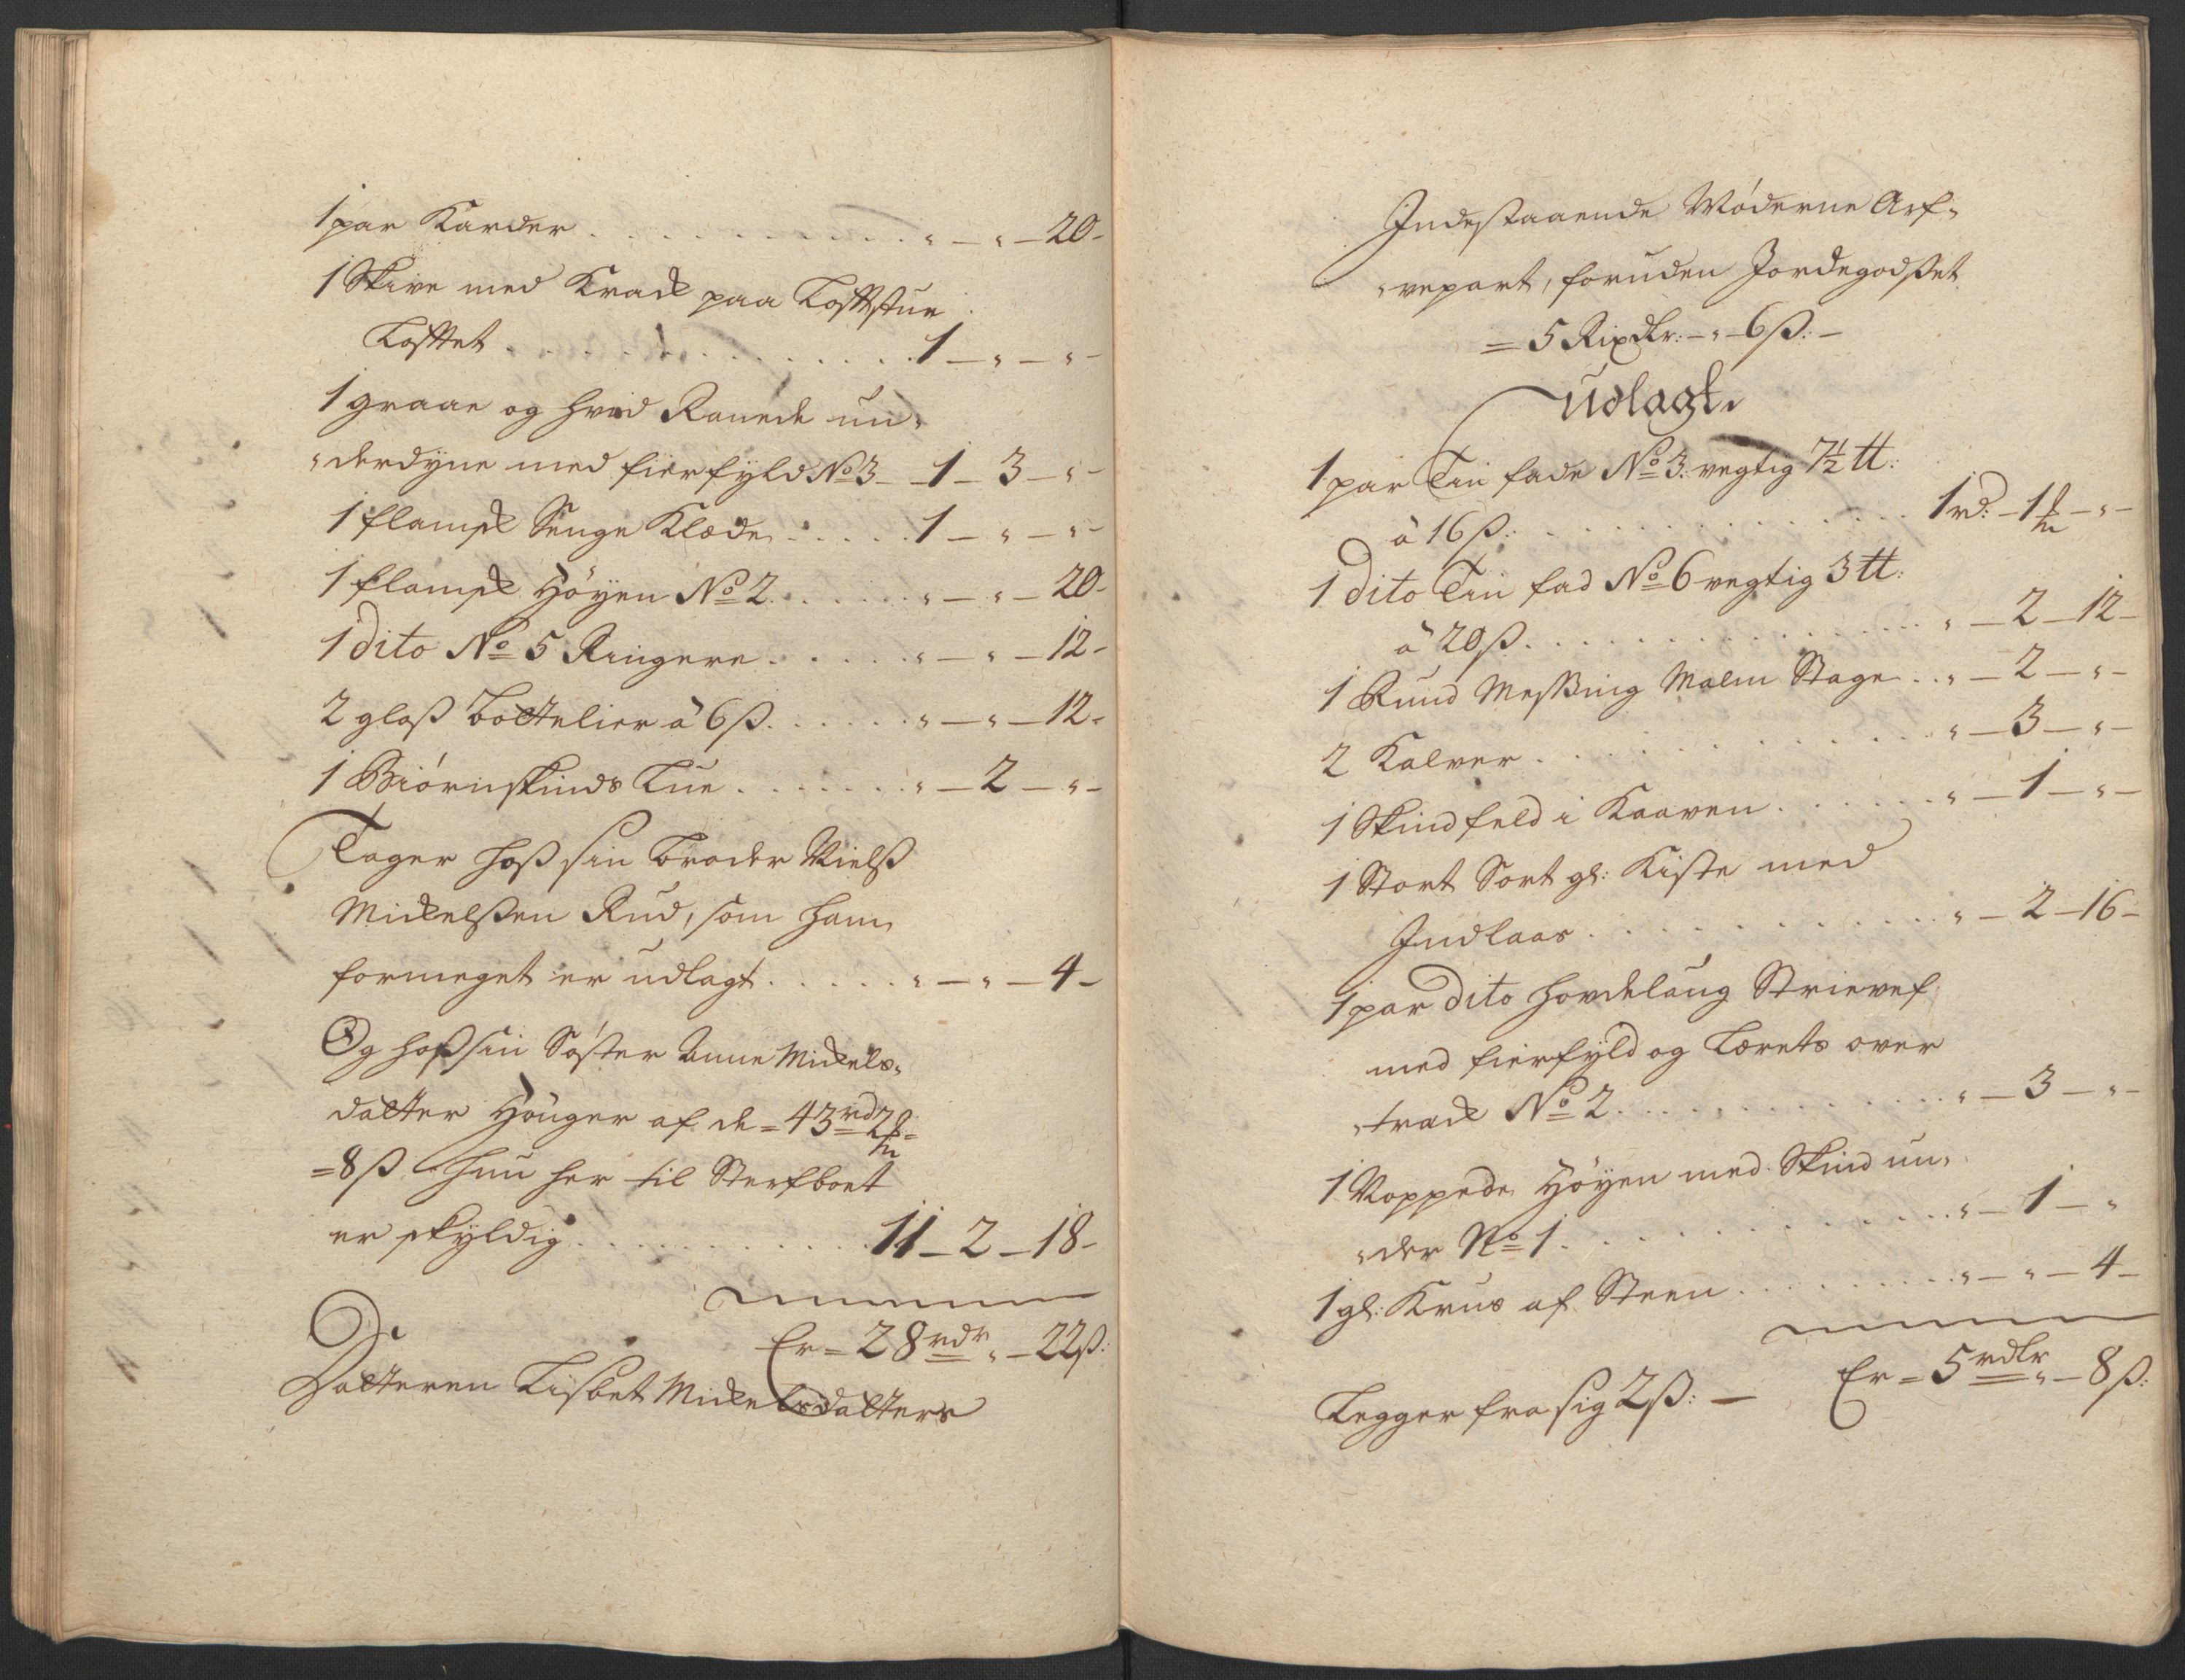 1 par Karder . . . . . . . . . . . „ — „ — 20 -
1 Skive med Krack paa Loftstue
Loftet . . . . . . . . . . . . . . 1 — „ — „ -
1 graae og hvid Ranede un„
„derdyne med fierfyld No 3 - 1 - 3 - „ -
1 flamsk Senge Klæde . . . . . 1 — „ — „ -
1 flamsk Høyen No 2 . . . . . . „ — „ — 20 -
1 dito No 5 Ringere . . . . . . „ — „ — 12 -
2 glaß Bottelier à 6 ß . . . . . „ — „ — 12 -
1 Biørnskinds Lue . . . . . . . „ — 2 — „ -
Tager hoß sin broder Nielß
Mickelßen Rud, som ham
formeget er udlagt . . . . . „ — „ — 4 -
Og hoß sin Søster Anne Mickels„
datter Houger af de = 43 rd 2 ℔ =
= 8 ß hun her til Sterfboet
er skyldig . . . . . . . . . 11 - 2 - 18 -
Er = 28 rdr „ - 22 ß:
Datteren Lisbet Mickelsdatters
Indestaaende Møderne Arf„
„vepart, foruden Jordegodßet
= 5 Rixdlr: - „ - 6 ß: -
Udlagt
1 par Tin fade No 3: vegtig 7½ ℔:
à 16 ß: . . . . . . . . . . . . 1 rd: - 1 ℔ - „ -
1 dito Tin fad No 6 vegtig 3 ℔:
à 20 ß . . . . . . . . . . . . „ — 2 — 12 -
1 Rund Meßing Malm Stage . . „ — 2 — „ -
2 Kalver . . . . . . . . . . . „ — 3 — „ -
1 Skindfeld i Kaaven . . . . . . „ — 1 — „ -
1 Stort Sort gl: Kiste med
Indlaas . . . . . . . . . . . . „ — 2 — 16 -
1 par dito hovdelaug Strievef
med fierfyld og Lærets over
„track No 2 . . . . . . . . . . „ — 3 — „ -
1 Noppede Høyen med Skind un„
„der No 1 . . . . . . . . . . . „ — 1 — „
1 gl: Krus af Steen . . . . . . . „ — „ — 4 -
Er = 5 rdlr „ - 8 ß:
Legger fra sig 2 ß: —